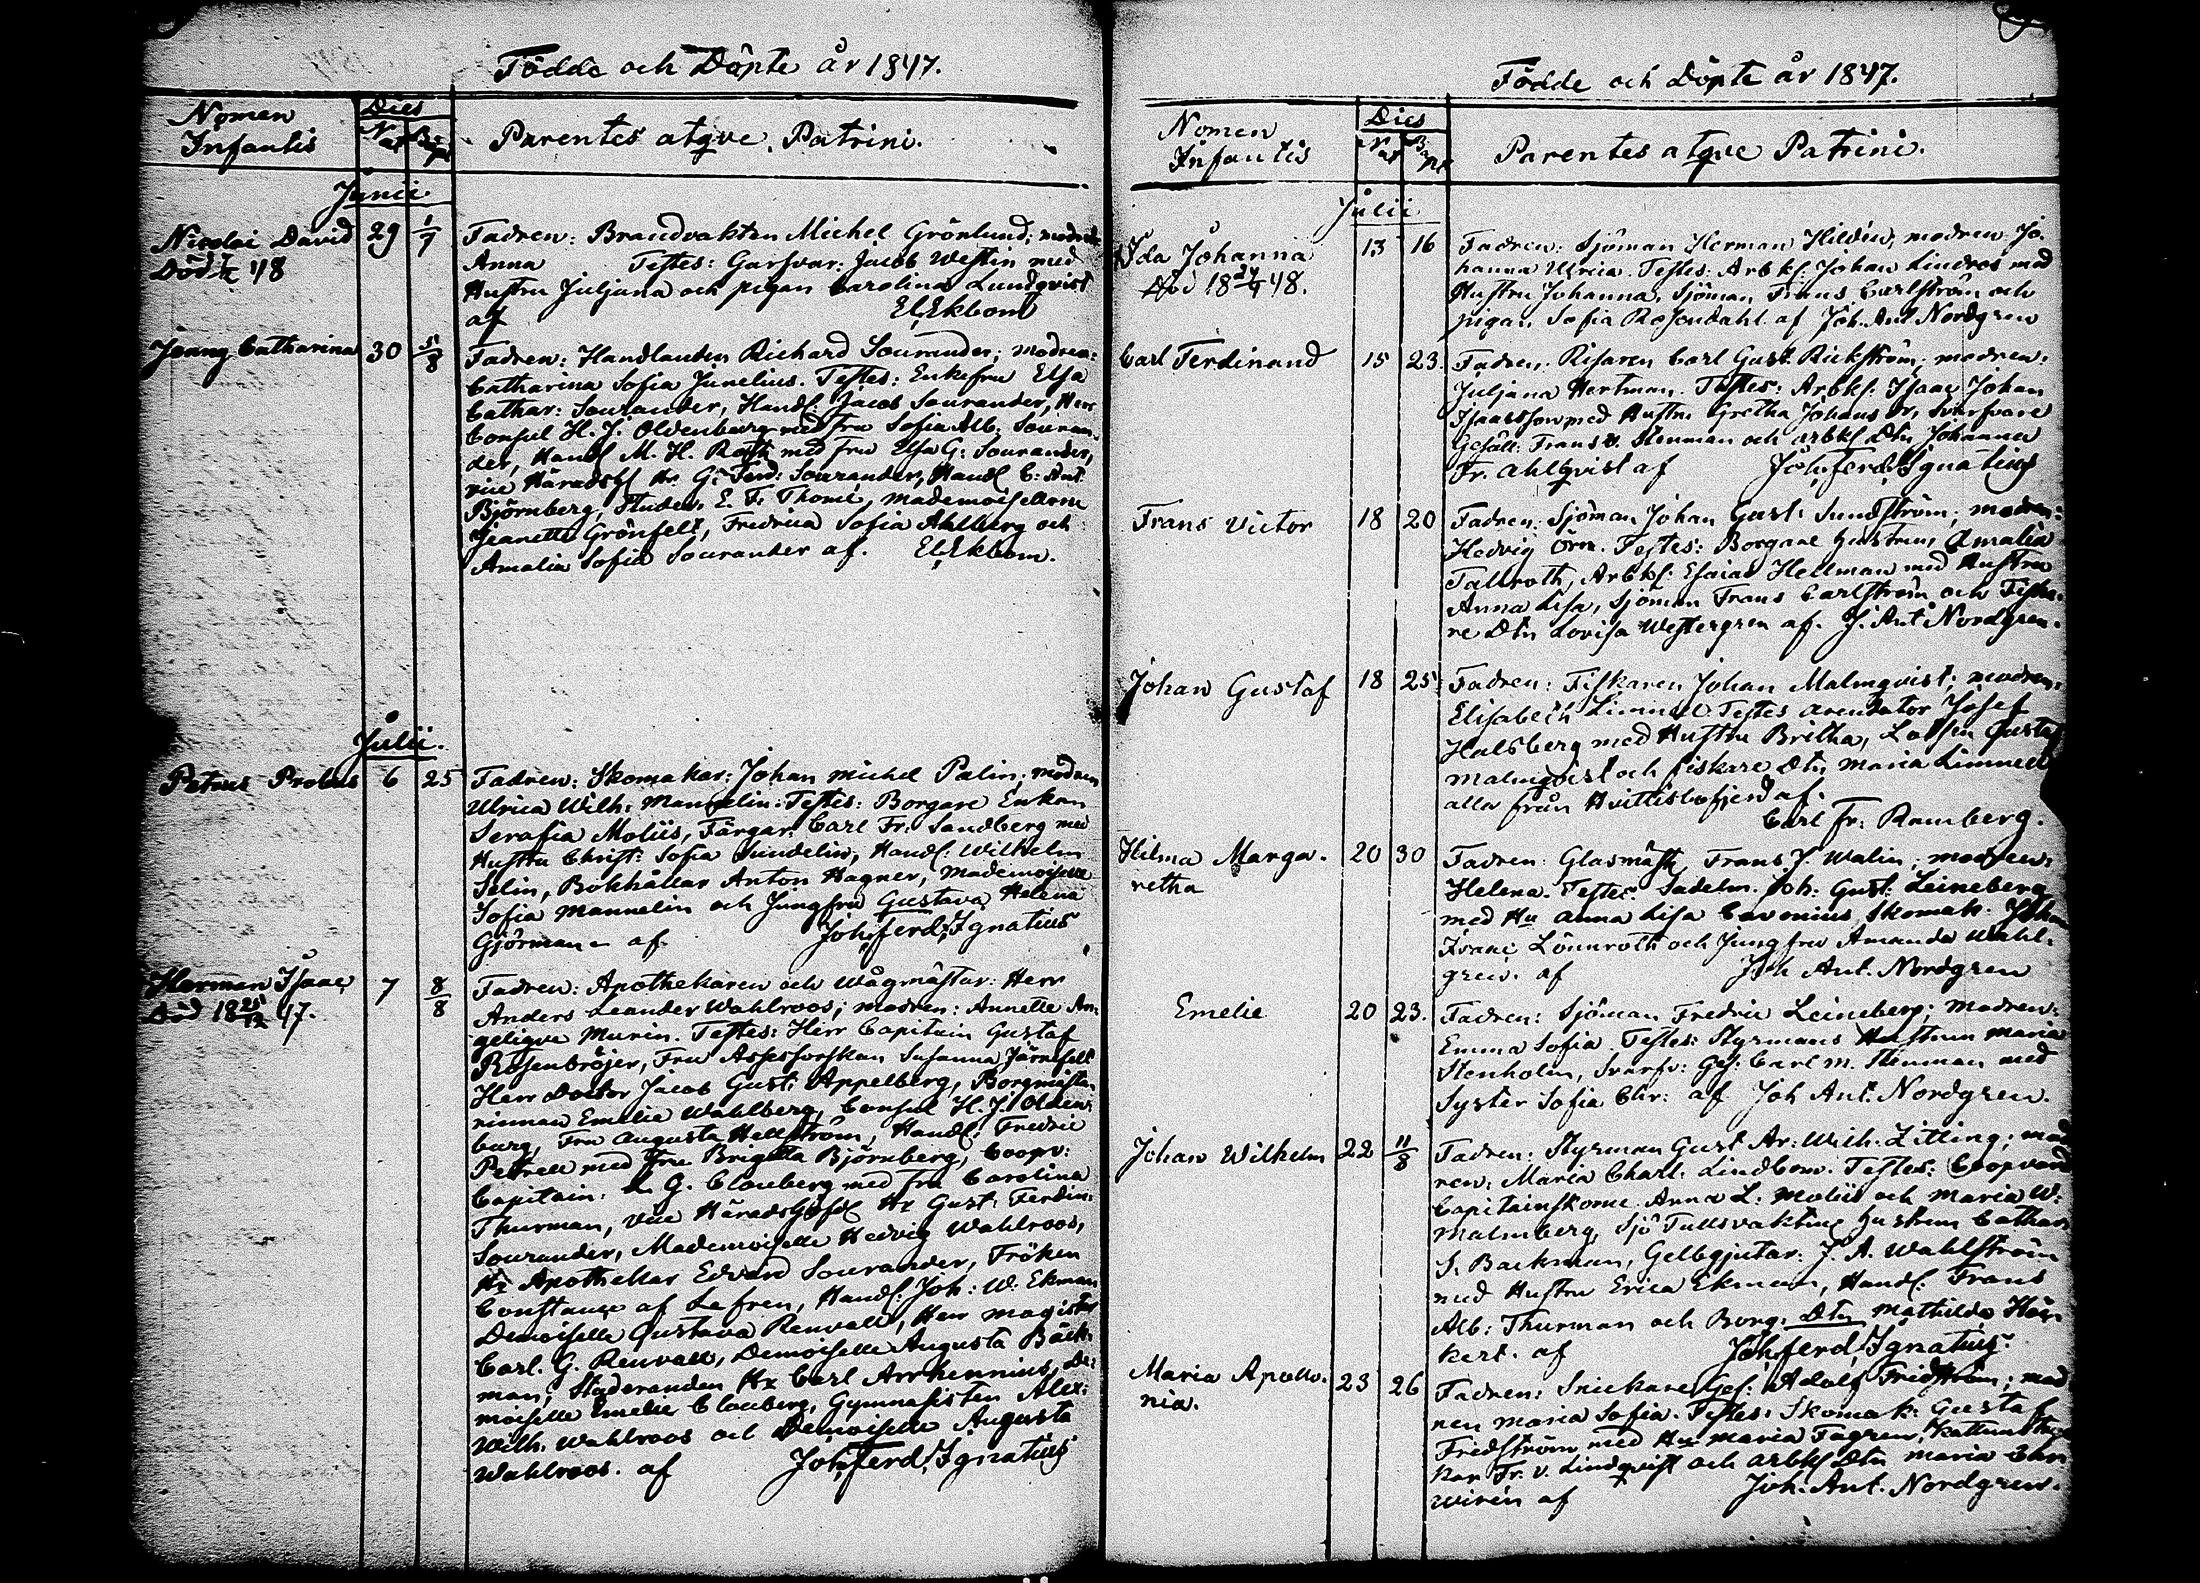 Födde och Döpte år 1847.
Nomen Infantis
Dies
Nat Bapt
Parentes atqve Patrini.
Junii
Nicolai David 29 1/7 Fadren: Brandvakten Michel Grönlund; modren
Död 48 Anna Testes: Garfvar: Jacob Westin med
Hustru Juljana och pigan Carolina Lundqvist
af El. Ekbom
Jenny Catharina 30 5/8 Fadren: Handlanden Richard Sourander; modren:
Catharina Sofia Junelius. Testes: Enkefru Elsa
Cathar: Sourander, Handl: Jacob Sourander, Herr
Consul H. J. Oldenburg med fru Sofia Alb: Souran-
der, Handl M. H. Rostk med Fru Elsa G: Sourander,
vice Häradsh Hr G: Ferd: Sourander, Handl C: Ant
Björnberg, Studen. E. F. Thomé, mademoisellerne
Jeanette Grönfelt, Fredrica Sofia Ahlberg och
Amalia Sofia Sourander af. El. Ekbom.
Julii.
Petrus Probus 6 25 Fadren: Skomakar: Johan Michel Palin; modren
Ulrica Wilh: Mannelin. Testes: Borgare Enkan
Serafia Moliis, Färgar: Carl Fr: Sandberg med
Hustru Christ: Sofia Sundelin, Handl: Wilhelm
Selin, Bokhållar Anton Hagner, Mademoiselle
Sofia Mannelin och Jungfru Gustava Helena
Gjörman af Joh. ferd. Ignatius
Herman Isaac 7 8/8 Fadren: Apothekaren och Vågmästar: Herr
Död 18 25/12 47. Anders Leander Wahlroos; modren: Annette An-
geliqve Murin. Testes: Herr Capitain Gustaf
Rosenbröjer, Fru Assessorskan Susanna Järnefelt
Herr Doctor Jacob Gust: Appelberg, Borgmästa-
rinnan Emelie Wahlberg, Consul H. J. Olden-
burg, Fru Augusta Hellström, Handl: Fredric
Petrell med fru Brigitta Björnberg, Coopv:
Capitain: L. G. Clouberg med fru Carolina
Thurman, vice Häradshöfd Hr Gust: Ferdin:
Sourander, Mademoiselle Hedvig Wahlroos,
Hr Apothekar Edvard Sourander, Fröken
Constance af Lefren, Handl: Joh: W: Ekman
Demoiselle Gustava Renvall, Herr magister
Carl. G. Renvall, Demoiselle Augusta Bäck-
man, Studeranden Hr Carl Arrhennius, De-
moiselle Emelie Clouberg, Gymnasisten Alex:
Wilh. Wahlroos och Demoiselle Augusta
Wahlroos. af Joh. Ferd. Ignatius
Födde och Döpte år 1847.
Nomen Infantis
Dies
Nat Bapt
Parentes atqve Patrini.
Julii
Ida Johanna 13 16 Fadren: Sjöman Herman Hildén; modren Jo-
Död 18 48. hanna Ulrica. Testes: Arbkl: Johan Lindros med
Hustru Johanna, Sjöman Frans Carlström och
pigan Sofia Rosendahl af Joh. Ant Nordgren
Carl Ferdinand 15 23. Fadren: Gust: Rickström; modren:
Juljana Hertman. Testes: Arbkl: Isaac Johan
Isaacsson med Hustru Gretha Johans dr, Svarfvare
Gesäll: Frans V. Stenman och arbkl Dtn Johanna
Fr. Ahlqvist af Joh. ferd. Ignatius
Frans Victor 18 20 Fadren: Sjöman Johan Gust: Sundström; modren:
Hedvig Örn. Testes: Borgare hustrun Amalia
Tallroth, Arbkl: Esaias Hellman med Hustru
Anna Lisa, Sjöman Frans Carlström och Fiska-
re Dtn Lovisa Westergren af. J. Ant Nordgren.
Johan Gustaf 18 25 Fadren: Fiskaren Johan Malmqvist; modren:
Elisabeth Limnell Testes arendator Josef
Halsberg med Hustru Britha, Gustaf
Malmqvist och fiskare Dtn Maria Limnell
alla från Hvittisbofjerd af.
Carl Fr: Ramberg.
Hilma Marga- 20 30 Fadren: Glasmäst. Frans J. Walin; modren:
retha Helena. Testes: Sadelm. Joh: Gust: Leineberg
med Hu Anna Lisa Cavonius, Skomak: Johan
Lönnroth och Jungfru Amanda Wahl-
gren. af Joh Ant. Nordgren
Emelie 20 23. Fadren: Sjöman Fredric Leineberg; Modren:
Emma Sofia. Testes: Styrmans Hustrun Maria
Stenholm, Svarfv: Ges: Carl M. Stenman med
Syster Sofia Chr: af Joh Ant. Nordgren.
Johan Wilhelm 22 11/8 Fadren: Styrman Gust Ar: Wilh. Litling; mod
ren: Maria Charl: Lindbom. Testes: Coopvard
Capitainskorne Anna L. Moliis och Maria W:
Malmberg, Sjö Tullsvaktine hustrun Cathar
S. Backman, Gelbgjutar: J. A. Wahlström
med Hustru Erica Ekman, Handl: Frans
Alb: Thurman och Borg. Dtn Mathilda
kert. af Joh. ferd. Ignatius.
Maria Apollo- 23 26 Fadren: Snickare Ges: Adolf Fridström; mod
nia. ren Maria Sofia. Testes: Skomak: Gustaf
Fridström med Hu Maria Fagren,
kar Fr. V. Lindqvist och arbkl Dtn Maria Chr
Wirén af Joh. Ant. Nordgren.